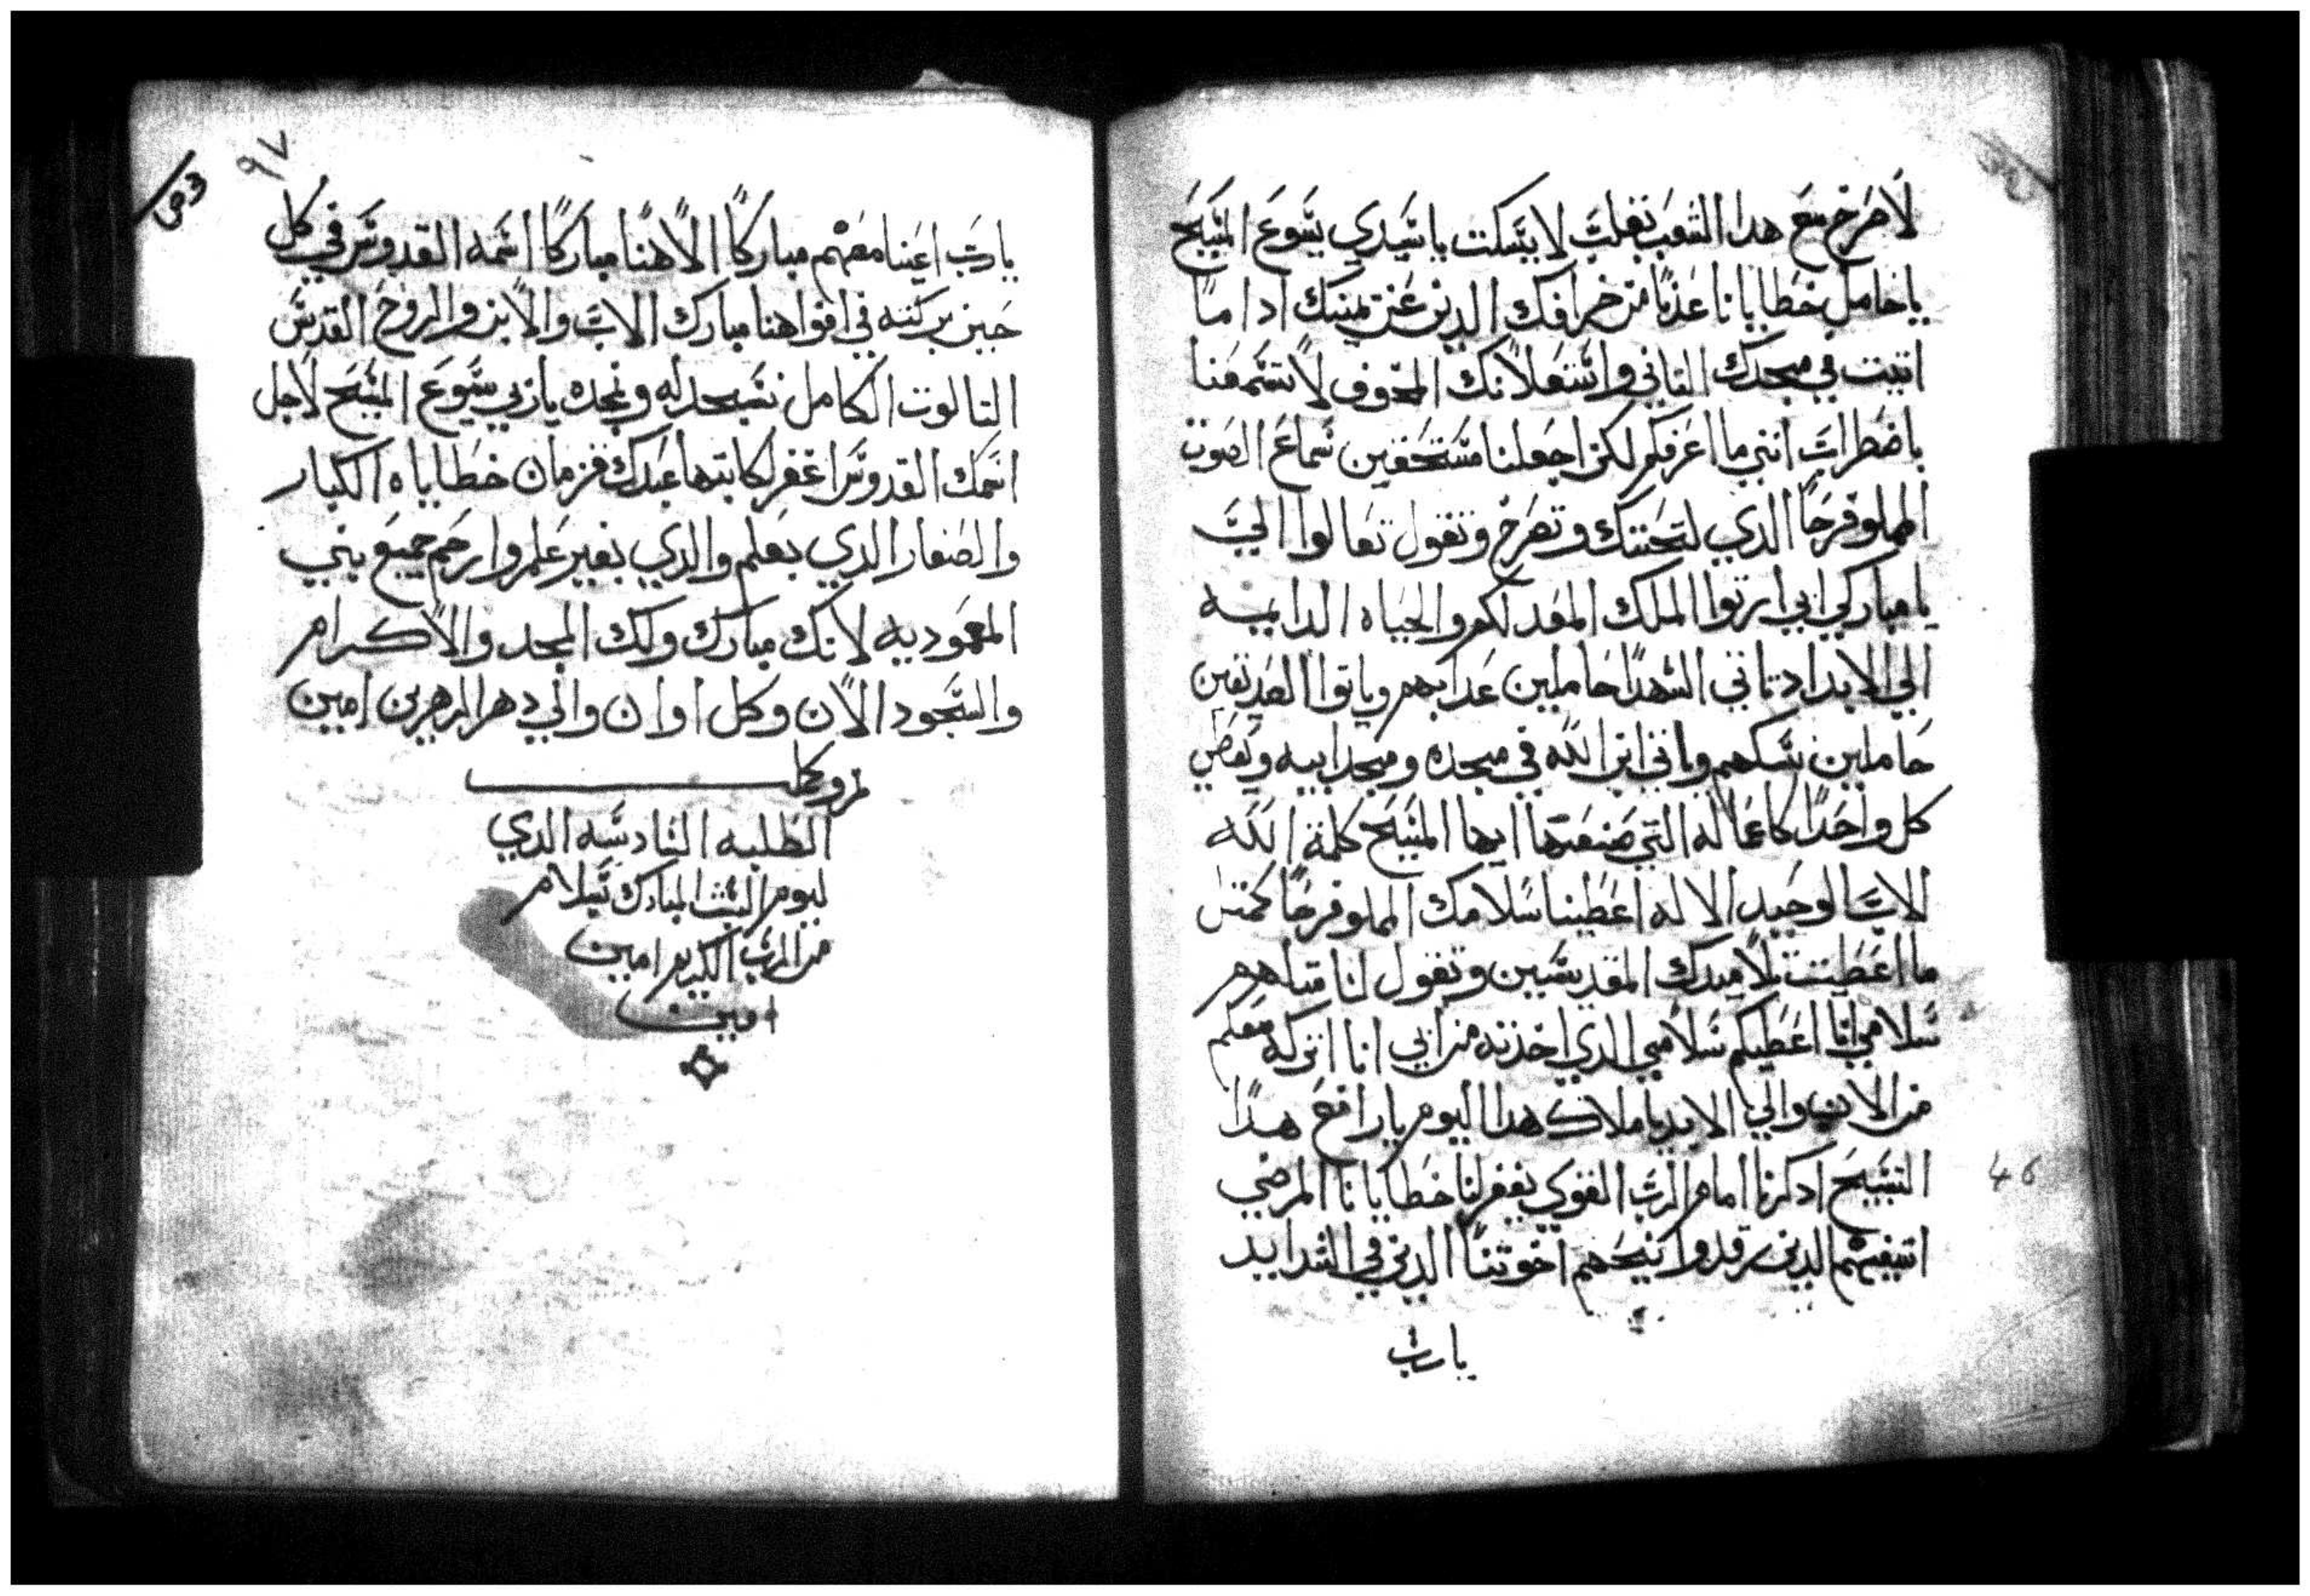 لاصرخ مع هدا الشعب بقلب لا يسكت يا سيدي يسوع المسيح
يا حامل خطايانا عدنا من خرافك الدين عن يمينك ادا ما
اتيت في مجدك التاني واستعلانك المخوف لا تسمعنا
باضطراب انني ما اعرفكم لكن اجعلنا مستحقين سماع الصوت
المملو فرحا الدي لتحننك وتصرخ وتقول تعالوا اليّ
يا مباركي ابي ارتوا الملك المعد لكم والحياه الدايمه
الي الابد ادتاتي الشهدا حاملين عدابهم وياتوا الصديقين
حاملين نسكهم وياتي ابن الله في مجده ومجد ابيه ويعطي
كل واحدا كاعماله التي صنعتها ايها المسيح كلمة الله
الاب الوحيد الاله اعطينا سلامك المملو فرحا كمتل
ما اعطيت تلاميدك المقديسين وتقول لنا متلهم
سلامي انا اعطيكم سلامي الدي اخدته من ابي انا اتركه معكم
من الان والي الابد يا ملاك هدا اليوم يا رافع هدا
التسبيح ادكرنا امام الرب القوي يغفر لنا خطايانا المرضي
اشيفهم الدين رقدوا نيحهم اخوتنا الدين في الشدايد
يارب
46
٩٧
يارب اعينا معهم مباركا الاهنا مباركا اسمه القدوس في كل
حين بركته في افواهنا مبارك الاب والابن والروح القدس
التالوت الكامل نسجد له ونمجده يا ربي يسوع المسيح لاجل
اسمك القدوس اغفر لكاتبها عبدك قزمان خطاياه الكبار
والصغار الدي بعلم والدي بغير علم وارحم جميع بني
المعموديه لانك مبارك ولك المجد والاكرام
والسجود الان وكل اوان والي دهر الدهرين امين
تم وكمل
الطلبه السادسه الدي
ليوم السبت المبارك بسلام
من الرب الكريم امين
امين